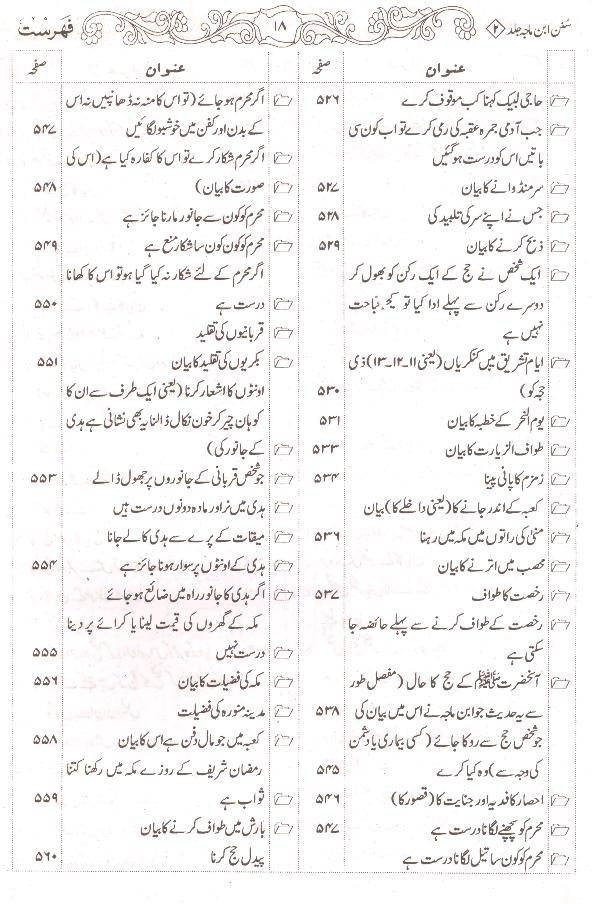 سُنن ابن ماجہ جلد ۲
۱۸
فہرست
عنوان صفحہ
حاجی لبیک کہنا کب موقوف کرے ۵۲۶
جب آدمی جمرہ عقبہ کی رمی کرے تو اب کون سی
باتیں اس کو درست ہوگئیں
سر منڈوانے کا بیان ۵۲۷
جس نے اپنے سر کی تلبید کی ۵۲۸
ذبح کرنے کا بیان ۵۲۹
ایک شخص نے حج کے ایک رکن کو بھول کر
دوسرے رکن سے پہلے ادا کیا تو کچھ قباحت
نہیں ہے
ایام تشریق میں کنکریاں (یعنی ۱۱۔۱۲۔۱۳) ذی
حجہ کو) ۵۳۰
یوم النحر کے خطبہ کا بیان ۵۳۱
طواف الزیارت کا بیان ۵۳۳
زمزم کا پانی پینا ۵۳۴
کعبہ کے اندر جانے کا (یعنی داخلے کا) بیان
منیٰ کی راتوں میں مکہ میں رہنا ۵۳۶
محصب میں اترنے کا بیان
رخصت کا طواف ۵۳۷
رخصت کے طواف کرنے سے پہلے حائضہ جا
سکتی ہے
آنحضرت ﷺ کے حج کا حال (مفصل طور
سے یہ حدیث جو ابن ماجہ نے اس میں بیان کی ۵۳۸
جو شخص حج سے روکا جائے (کسی بیماری یا دشمن
کی وجہ سے) وہ کیا کرے ۵۴۵
احصار کا فدیہ اور جنایت کا (قصور کا) ۵۴۶
محرم کو پچھنے لگانا درست ہے ۵۴۷
محرم کو کون سا تیل لگانا درست ہے
عنوان صفحہ
اگر محرم ہو جائے (تو اس کا منہ نہ ڈھانپیں نہ اس
کے بدن اور کفن میں خوشبو لگائیں ۵۴۷
اگر محرم شکار کرے تو اس کا کفارہ کیا ہے (اس کی
صورت کا بیان) ۵۴۸
محرم کو کون سے جانور مارنا جائز ہے
محرم کو کون کون سا شکار منع ہے ۵۴۹
اگر محرم کے لئے شکار نہ کیا گیا ہو تو اس کا کھانا
درست ہے ۵۵۰
قربانیوں کی تقلید
بکریوں کی تقلید کا بیان ۵۵۱
اونٹوں کا اشعار کرنا (یعنی ایک طرف سے ان کا
کوہان چیر کر خون نکال ڈالنا یہ بھی نشانی ہے ہدی
کے جانور کی)
جو شخص قربانی کے جانوروں پر جھول ڈالے ۵۵۳
ہدی میں نر اور مادہ دونوں درست ہیں
میقات کے پرے سے ہدی کا لے جانا
ہدی کے اونٹوں پر سوار ہونا جائز ہے ۵۵۴
اگر ہدی کا جانور راہ میں ضائع ہو جائے
مکہ کے گھروں کی قیمت لینا یا کرائے پر دینا
درست نہیں ۵۵۵
مکہ کی فضیلت کا بیان ۵۵۶
مدینہ منورہ کی فضیلت
کعبہ میں جو مال دفن ہے اس کا بیان ۵۵۸
رمضان شریف کے روزے مکہ میں رکھنا کتنا
ثواب ہے ۵۵۹
بارش میں طواف کرنے کا بیان
پیدل حج کرنا ۵۶۰